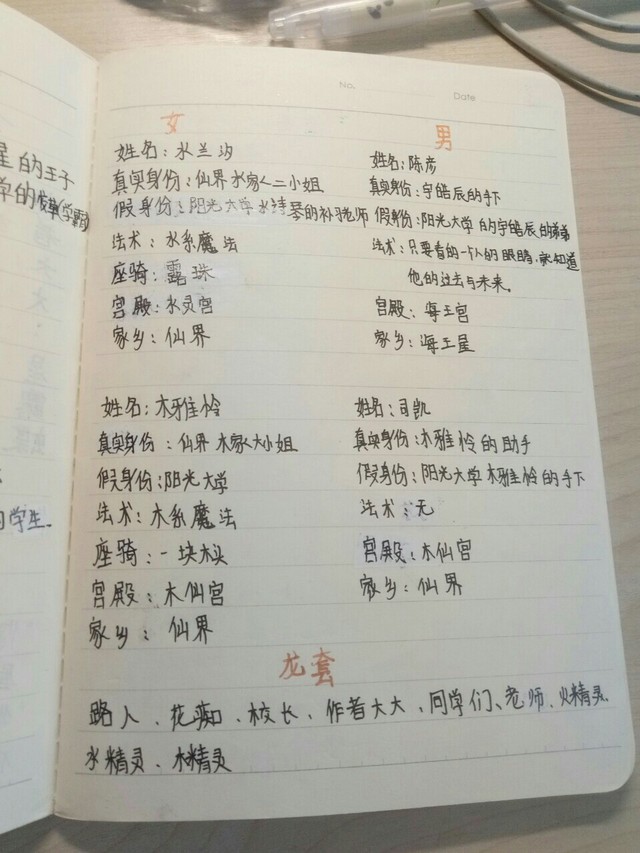 No.
Date
星的王子
校草(学霸)
的学生.
女
姓名:水兰汐
真实身份:仙界水家二小姐
假身份:阳光大学水诗琴的补习老师
法术:水系魔法
座骑:露珠
宫殿:水灵宫
家乡:仙界
男
姓名:陈彦
真实身份:宇皓辰的手下
假身份:阳光大学的宇皓辰的弟弟
法术:只要看的一个人的眼睛,就知道
他的过去与未来.
宫殿:海王宫
家乡:海王星
姓名:木雅怜
真实身份:仙界木家大小姐
假身份:阳光大学
法术:木系魔法
座骑:一块木头
宫殿:木仙宫
家乡:仙界
姓名:司凯
真实身份:木雅怜的助手
假身份:阳光大学木雅怜的手下
法术:无
宫殿:木仙宫
家乡:仙界
龙套
路人、花痴、校长、作者大大、同学们、老师、火精灵、
水精灵、木精灵